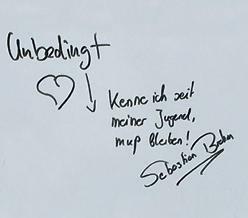 Unbedingt
Kenne ich seit
meiner Jugend,
muß bleiben!
Sebastian